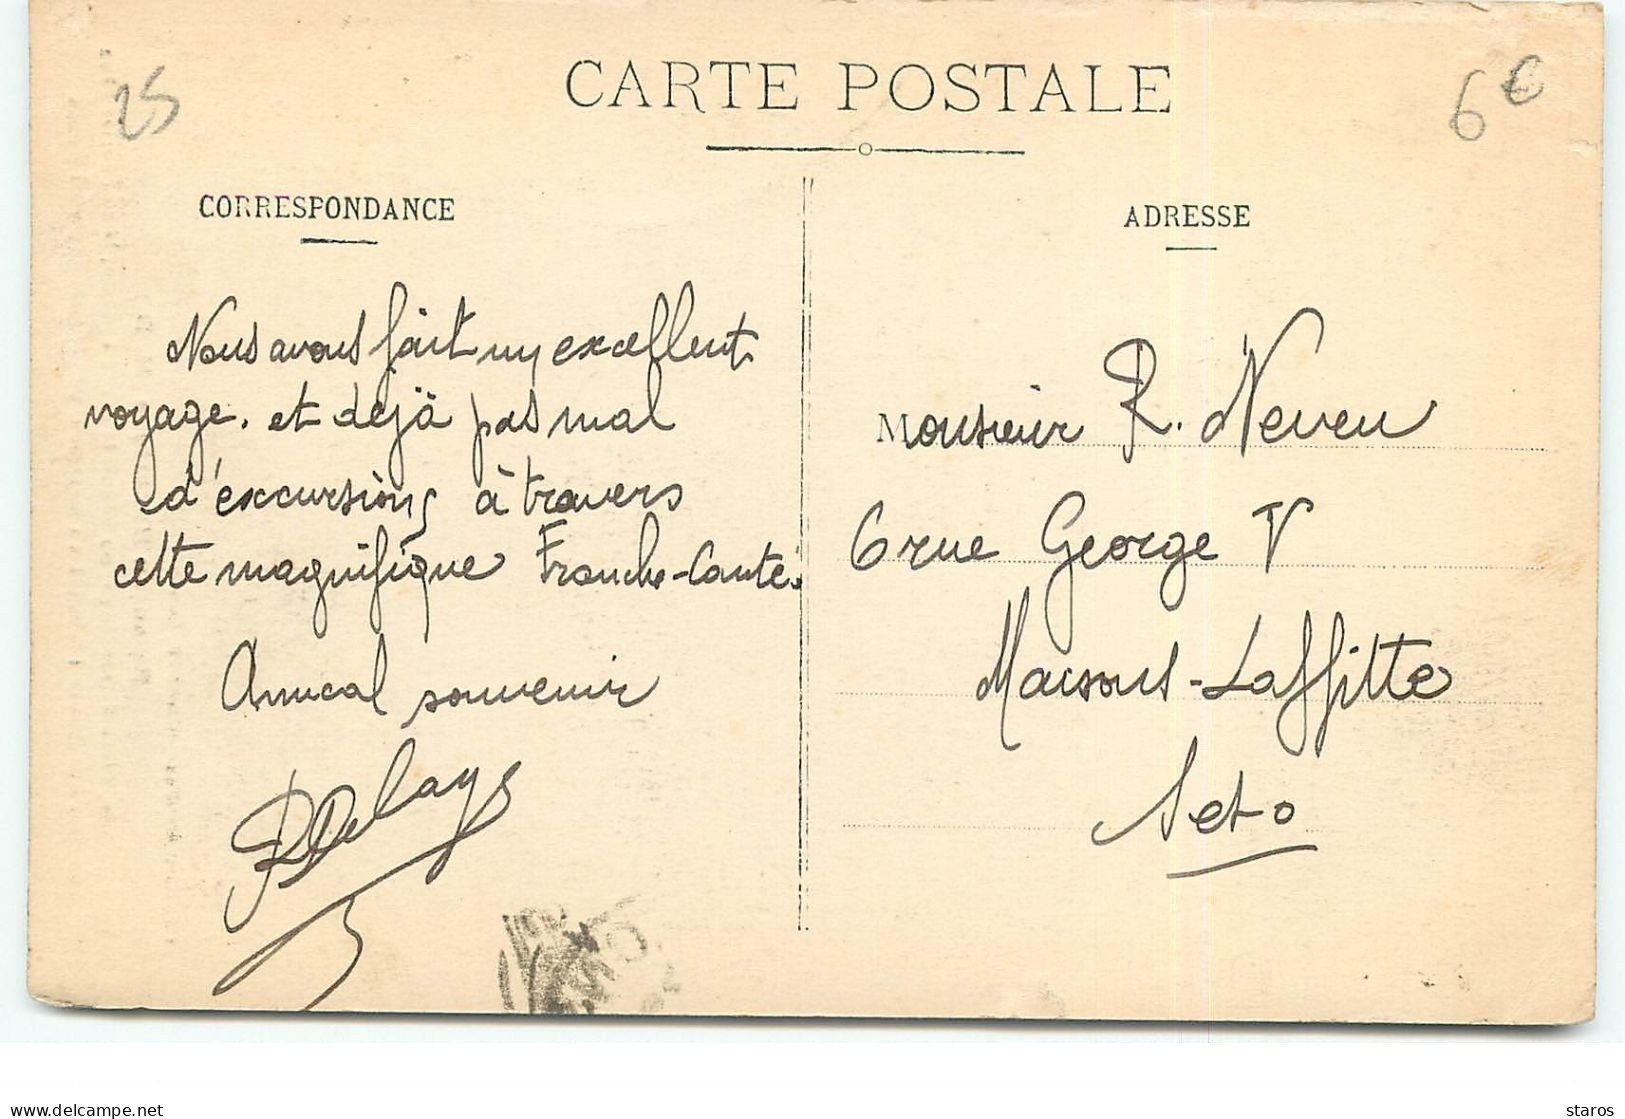 25
CARTE POSTALE
6€
CORRESPONDANCE
Nous avons fait un excellent
voyage. et déjà pas mal
d'excursions à travers
cette magnifique Franche-Comté.
Amical souvenir
Delays
ADRESSE
Monsieur R. Neveu
6 rue George V
Maisons-Laffitte
Set-o
delcampe.net
staros